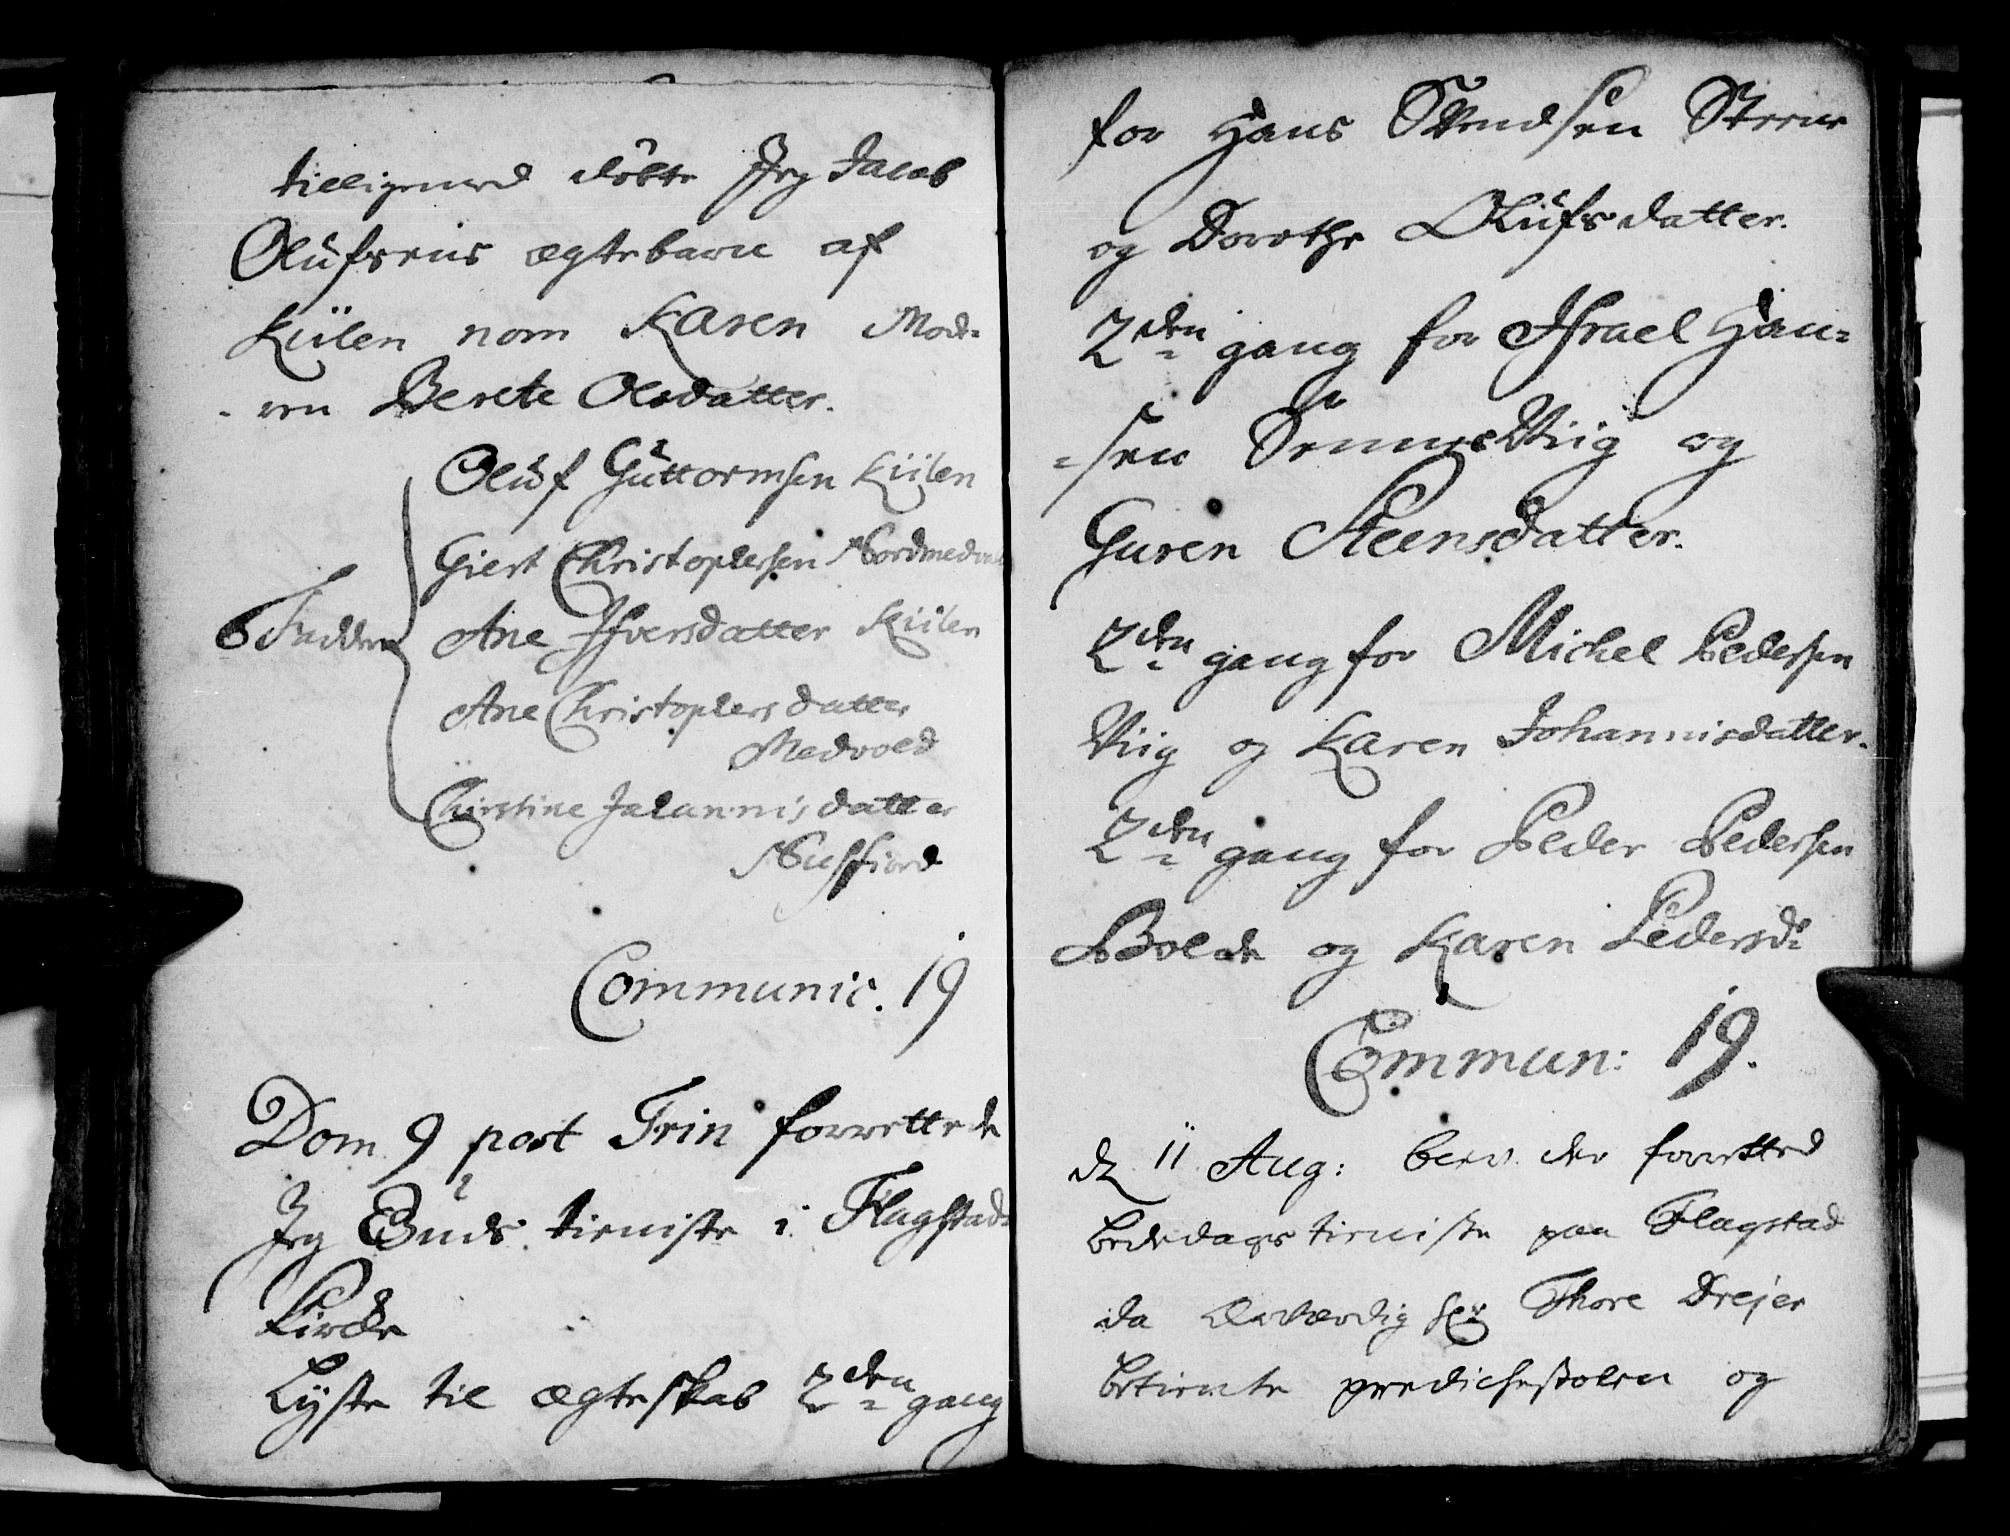 tilligemed döbte Jeg Jacob
Olüfsens ægte barn af
Kiilen nom Karen Mod-
-ren Berete Olsdatter.
Olüf Güttormsen Kiilen
Giert Christophersen Nordmedvold
Fadder Ane Ifversdatter Kiilen
Ane Christophersdatter
Medvold
Christine Johannisdatter
Nusfiord
Communic. 19
Dom 9 post Trin forrettede
Jeg Guds tieniste i Flagstad
Kircke
Lyste til ægteskab 2den gang
for Hans Svendsen
og Dorothe Olüfsdatter.
2den gang for Israel Han-
-sen Viig og
Guren Steensdatter.
2den gang for Michel Pedersen
Viig og Karen Johannisdatter.
2den gang for Peder Pedersen
Bolde og Karen Pedersd:
Commun: 19.
d 11 Aug: blev der forretted
bededags tieniste paa Flagstad
da Ærværdig Hr Thore Drejer
betiente predickestolen og